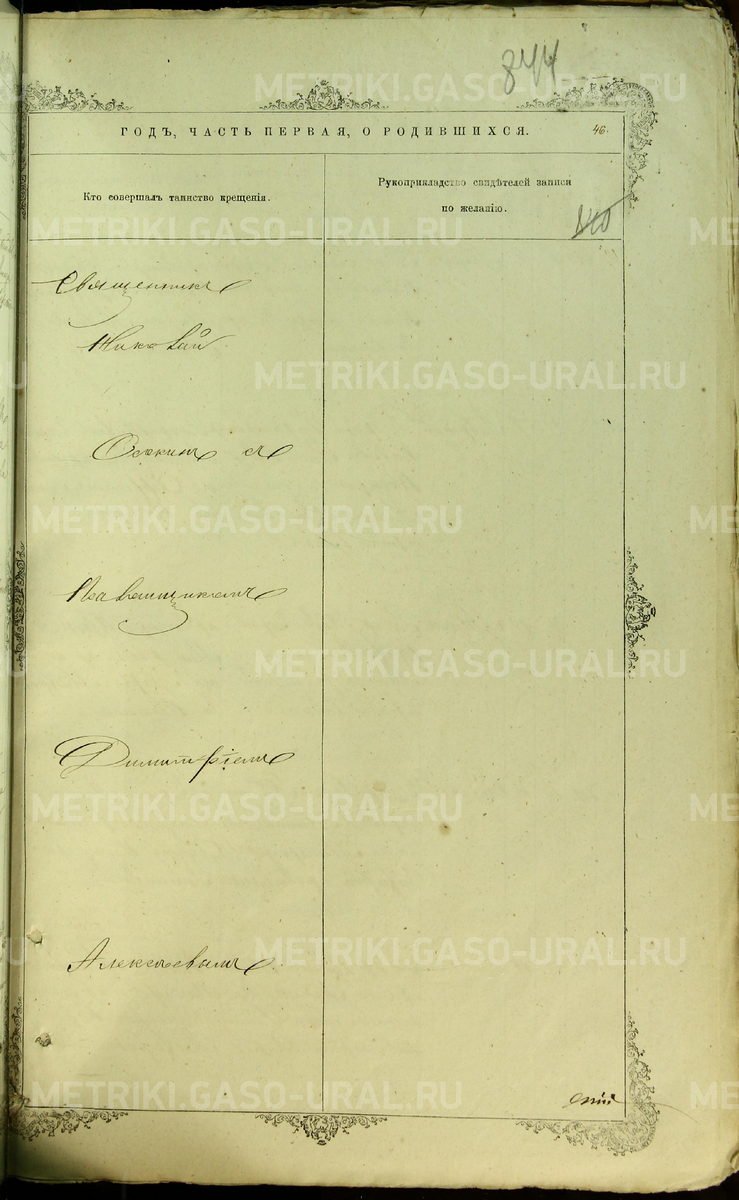 844
METRIKI.GASO-URAL.RU
ГОДЪ, ЧАСТЬ ПЕРВАЯ, О РОДИВШИХСЯ.
46.
Кто совершалъ таинство крещенія.
Рукоприкладство свидѣтелей записи
по желанію.
METRIKI.GASO-URAL.RU
Священникъ
Николай
METRIKI.GASO-URAL.RU
съ
METRIKI.GASO-URAL.RU
METRIKI.GASO-URAL.RU
Димитріемъ
METRIKI.GASO-URAL.RU
METRIKI.GASO-URAL.RU
METRIKI.GASO-URAL.RU